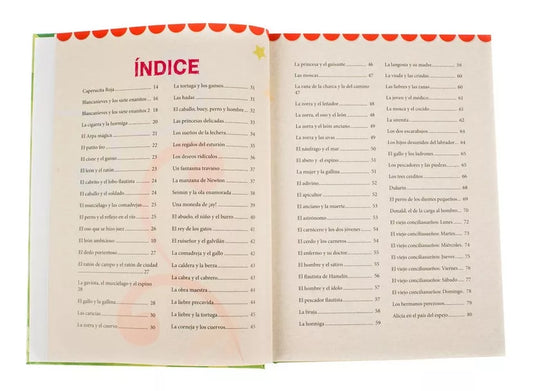 ÍNDICE
Caperucita Roja 14
Blancanieves y los siete enanitos 2
Blancanieves y los siete enanitos 2 18
La cigarra y la hormiga 20
El Arpa mágica 21
El patito feo 22
El cisne y el ganso 23
El león y el ratón 23
El cabrito y el lobo flautista 24
El caballo y el soldado 24
El murciélago y las comadrejas 25
El perro y el reflejo en el río 25
El oso que se hizo juez 26
El león ambicioso 10
El dedo portentoso 27
El ratón de campo y el ratón de ciudad
27
La gaviota, el murciélago y el espino
28
El gallo y la gallina 28
Las caricias 30
La zorra y el cuervo 30
La tortuga y los gansos 31
Las hadas 31
El caballo, buey, perro y hombre 31
Las princesas delicadas 33
Los sueños de la lechera 34
Los regalos del esturión 34
Los deseos ridículos 35
Un fantasma travieso 36
La manzana de Newton 36
Seimin y la ola enamorada 37
Una moneda de ¡ay! 38
El abuelo, el niño y el burro 40
El rey de los gatos 41
El ruiseñor y el gavilán 42
La comadreja y el gallo 42
La caldera y la berra 43
La cabra y el cabrero 43
La obra maestra 44
La liebre precavida 44
La liebre y la tortuga 45
La corneja y los cuervos 45
La princesa y el guisante 46
Las moscas 47
La rana de la charca y la del camino
47
La zorra y el leñador
La zorra, el oso y el león
La zorra y el león anciano
La zorra y las uvas
El náufrago y el mar
El abeto y el espino
La mujer y la gallina
El adivino
El apicultor
El anciano y la muerte
El astrónomo
El carnicero y los dos jóvenes
El cerdo y los carneros
El enfermo y su doctor
El hombre y el sátiro
El flautista de Hamelín
El hombre y el ídolo
El pescador flautista
La bruja
La hormiga 59
La langosta y su madre 59
La viuda y las criadas 60
Las liebres y las ranas 60
La joven y el médico
La mosca y el cocido 61
La sirenita
Los dos escarabajos
Los hijos desunidos del labrador 64
El gallo y los ladrones 65
Los pescadores y las piedras 65
Los tres cerditos 66
Dafurio 68
El perro de los dientes pequeños 69
Donald, el de la carga al hombro 70
El viejo conciliasueños: Lunes 72
El viejo conciliasueños: Martes 74
El viejo conciliasueños: Miércoles 74
El viejo conciliasueños: Jueves 75
El viejo conciliasueños: Viernes 76
El viejo conciliasueños: Sábado 77
El viejo conciliasueños: Domingo 78
Los hermanos perezosos 79
Alicia en el país del espejo 80